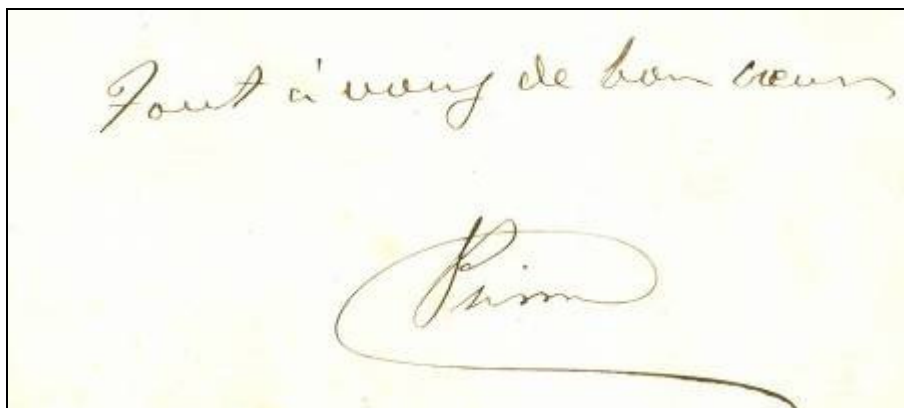 Tout à vous de bon cœur
Prim